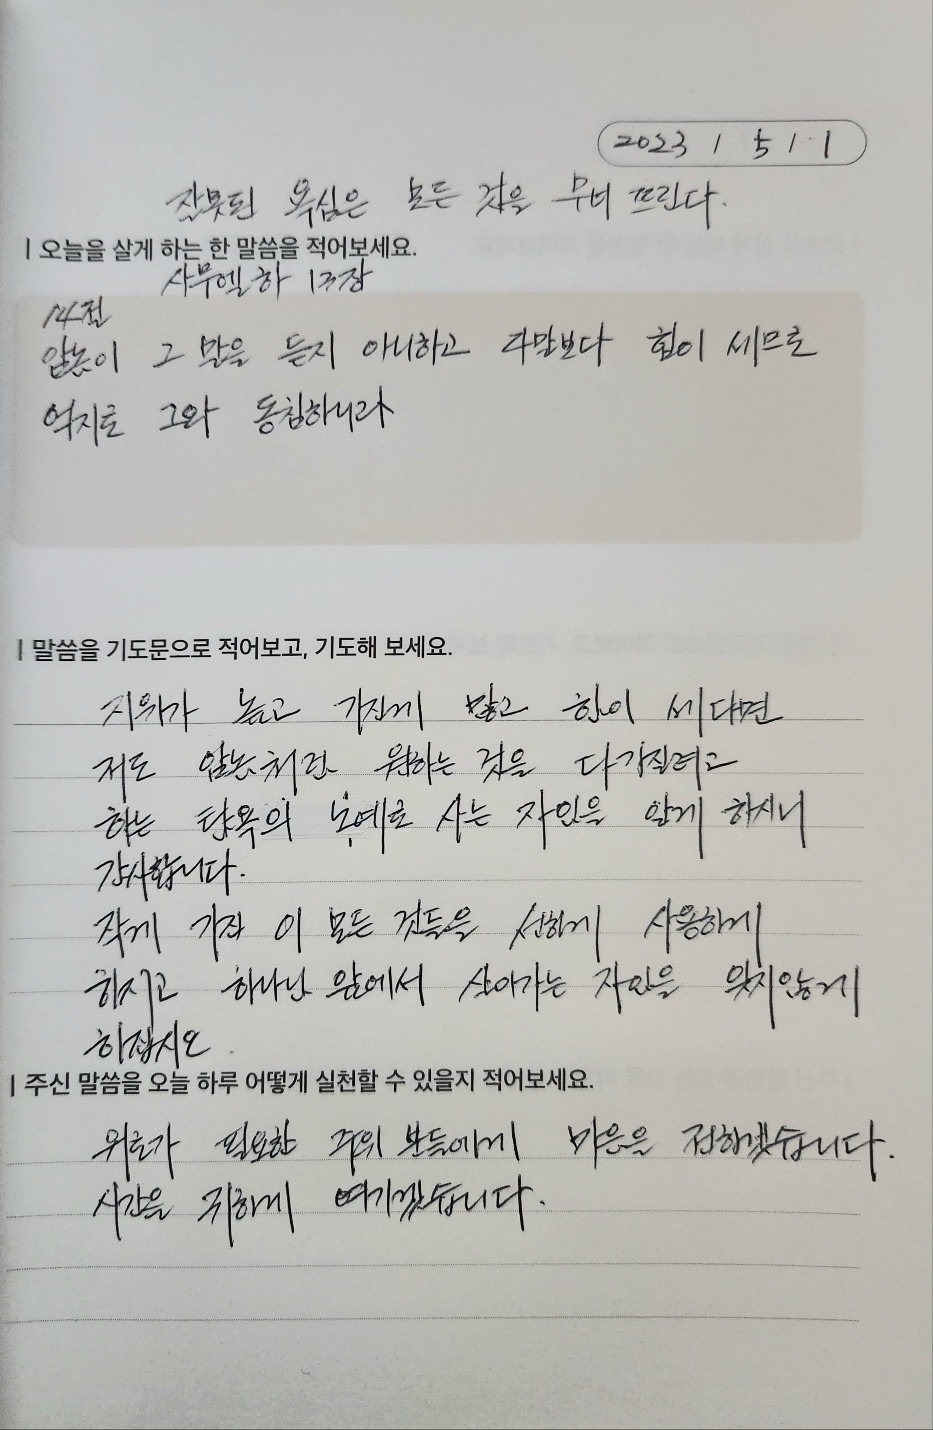 2023 / 5 / 1
잘못된 욕심은 모든 것을 무너 뜨린다.
| 오늘을 살게 하는 한 말씀을 적어보세요.
사무엘하 13장
14절
암논이 그 말을 듣지 아니하고 다말보다 힘이 세므로
억지로 그와 동침하니라
| 말씀을 기도문으로 적어보고, 기도해 보세요.
지위가 높고 가진게 많고 힘이 세다면
저도 암논처럼 원하는 것을 다 가질려고
하는 탐욕의 노예로 사는 자임을 알게 하시니
감사합니다.
작게 가진 이 모든 것들을 선하게 사용하게
하시고 하나님 앞에서 살아가는 자임을 잊지않게
하십시오
| 주신 말씀을 오늘 하루 어떻게 실천할 수 있을지 적어보세요.
위로가 필요한 주위 분들에게 마음을 전하겠습니다.
시간을 귀하게 여기겠습니다.